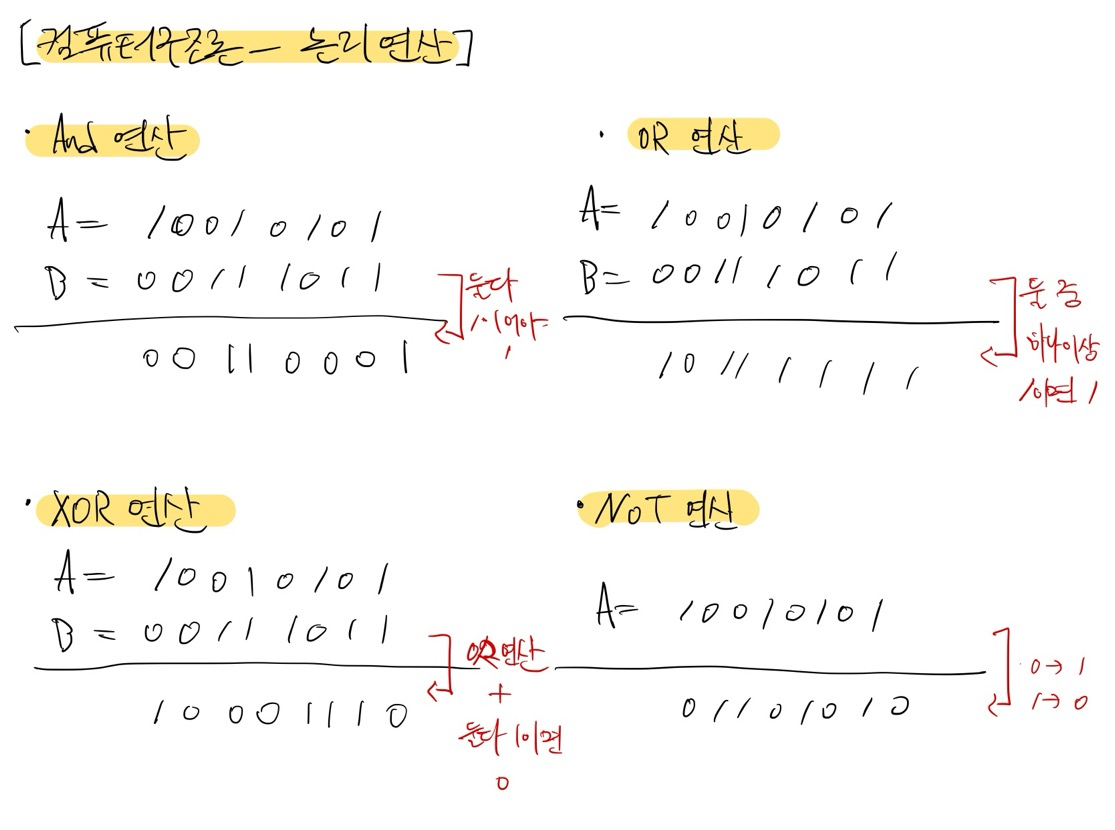 [컴퓨터구조론 - 논리연산]
· And 연산
A= 10010101
B = 00111011
00110001
둘다
1이어야
1
· OR 연산
A= 10010101
B= 00111011
10111111
둘 중
하나이상
1이면 1
· XOR 연산
A= 10010101
B = 00111011
10001110
OR연산
+
둘다 1이면
0
· NOT 연산
A= 10010101
01101010
0→1
1→0